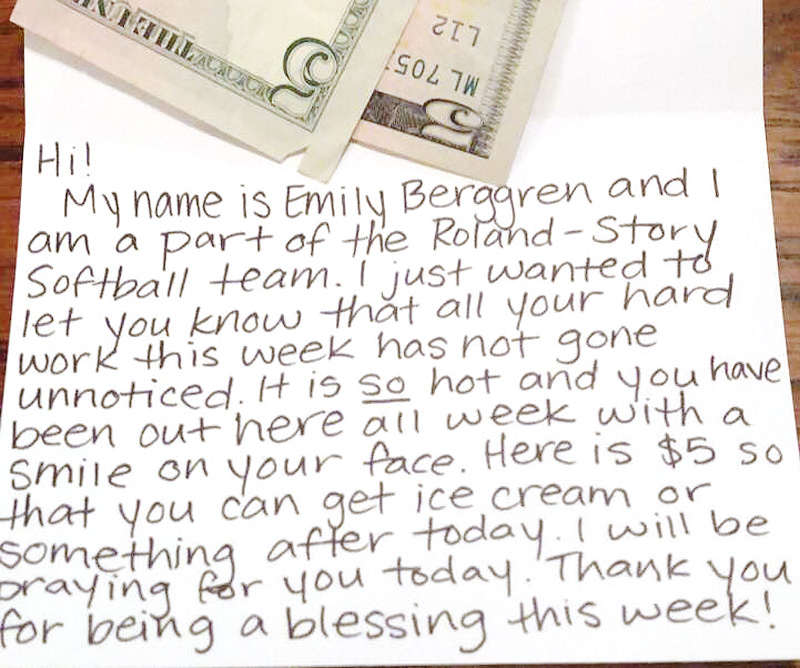 5
L12
ML 705
5
Hi!
My name is Emily Berggren and I
am a part of the Roland-Story
Softball team. I just wanted to
let you know that all your hard
work this week has not gone
unnoticed. It is so hot and you have
been out here all week with a
smile on your face. Here is $5 so
that you can get ice cream or
something after today. I will be
praying for you today. Thank you
for being a blessing this week!